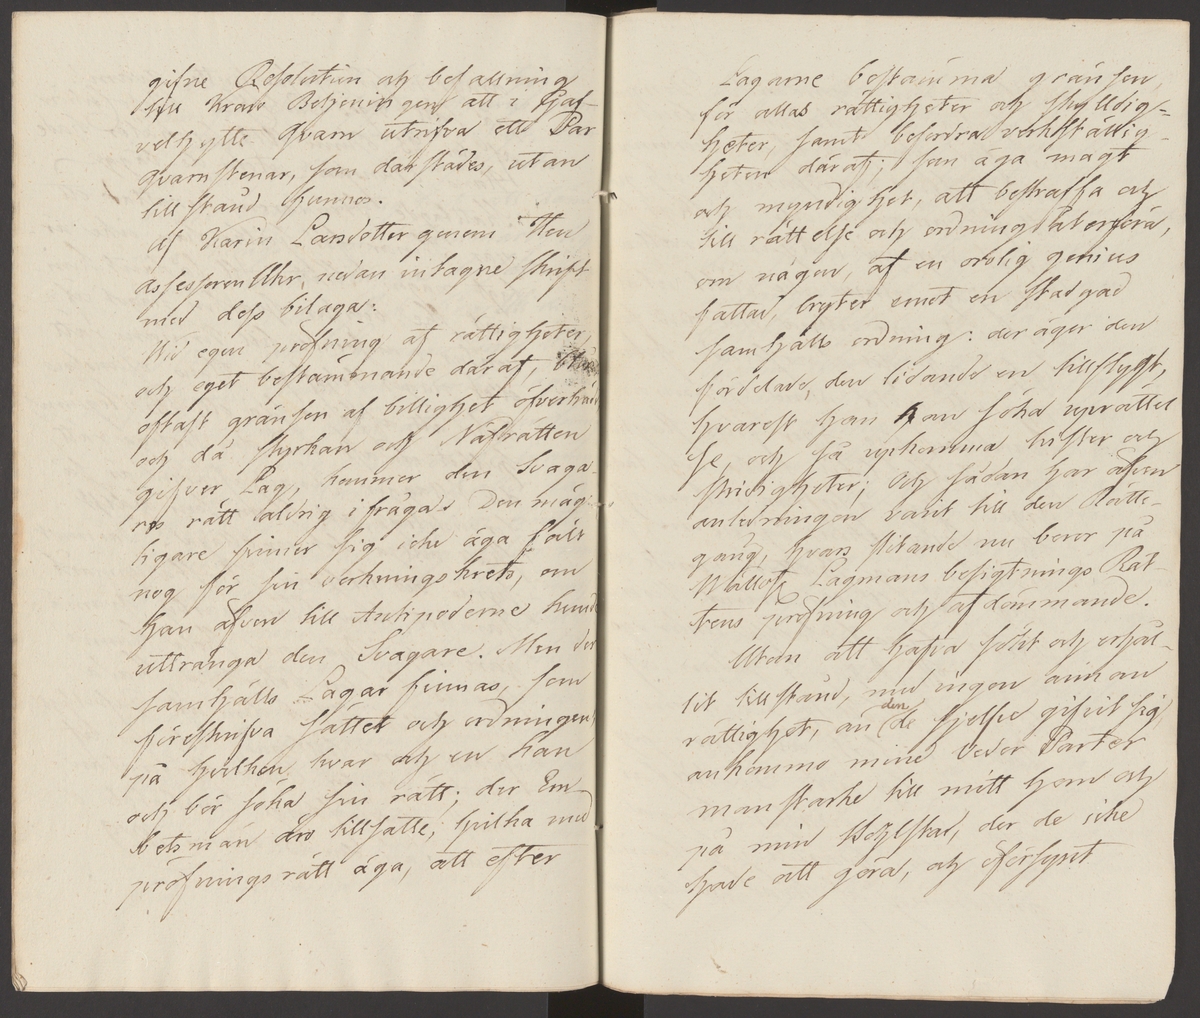 gifne Resolution och befallning
till Krono Betjeningen att i Gaf-
velhytte Qvarn utrifva ett Par
Qvarnstenar, som därstädes, utan
tillstånd hunnos.
Af Karin Larsdotter genom Herr
Assessoren Uhr, nedan intagne skrift
med dess bilaga:
Vid egen pröfning af rättigheter,
och eget bestämmande däraf,
oftast gränsen af billighet
och då styrkan och Näfrätten
gifver Lag, kommer den Svaga-
res rätt aldrig i fråga. Den mäg-
tigare finner sig icke äga fält
nog för sin verkningskrets, om
han äfven till Antipoderne kunde
uttränga den Svagare. Men der
samhälls Lagar finnas, som
föreskrifva sättet och ordningen,
på hvilken hvar och en kan
och bör söka sin rätt; der Em-
betsmän äro tillsatte, hvilka med
pröfnings rätt äga, att efter
Lagarne bestämma gränsen
för allas rättigheter och skyldig-
heter, samt befordra verkställig-
heten däraf; som äga magt
och myndighet, att bestraffa och
till rättelse och ordning återföra,
om någon, af en orolig genius
fattad, bryter emot en stadgad
samhälls ordning: der äger den
fördelade, den lidande en tillflygt,
hvarest han kan söka uprättel
se, och så upkomma tvister och
stridigheter; Och sådan har äfven
anledningen varit till den Rätte-
gång, hvars slitande nu beror på
Wällofl. Lagmans besigtnings Rät-
tens pröfning och afdömmande.
Utan att hafva sökt och erhål-
lit tillstånd, med ingen annan
rättighet, än den de sjelfve gifvit sig,
ankommo mine Veder Parter
manstarke till mitt hem och
på min Hofstad, der de icke
hade att göra, och oförsynt